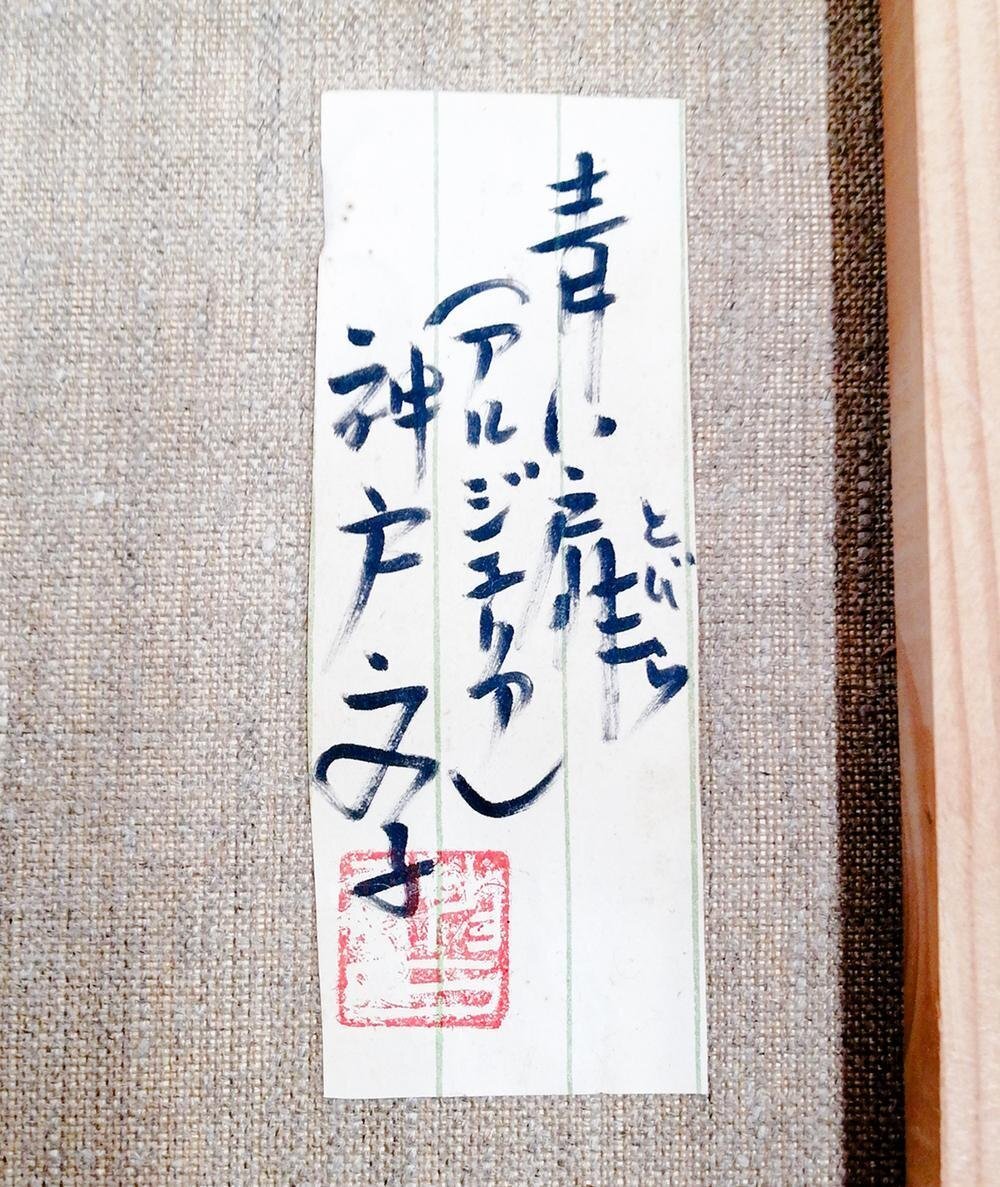 とびら
青い扉
(アルジエリア)
神戸文子